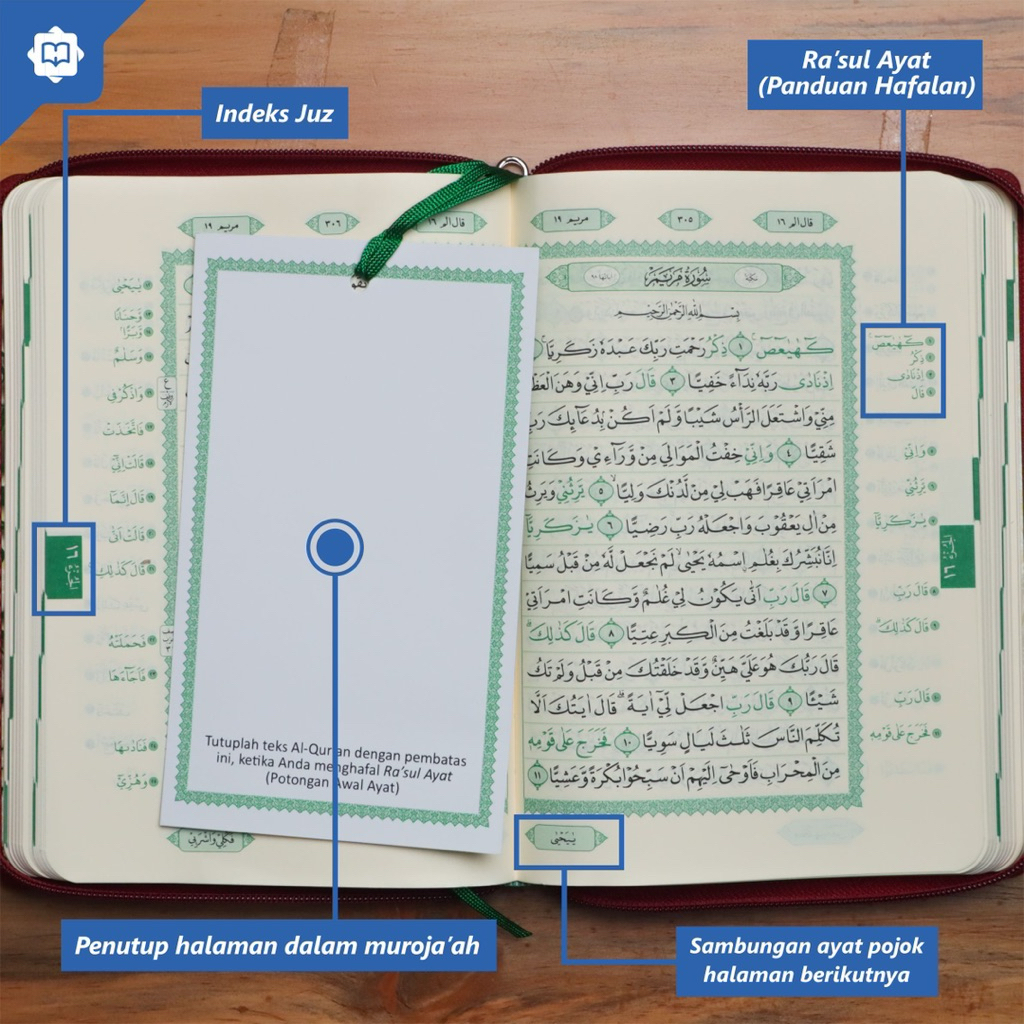 Indeks Juz
Ra'sul Ayat
(Panduan Hafalan)
مريم ١٩
٣٠٦
قال الم ١٦
مريم ١٩
٣٠٥
قال الم ١٦
سُورَةُ مَرْيَمَ
مكية
بِسْمِ اللّٰهِ الرَّحْمٰنِ الرَّحِيْمِ
كۤهٰيٰعۤصۤ ۝١ ذِكْرُ رَحْمَتِ رَبِّكَ عَبْدَهٗ زَكَرِيَّا
اِذْ نَادٰى رَبَّهٗ نِدَاۤءً خَفِيًّا ۝٣ قَالَ رَبِّ اِنِّيْ وَهَنَ الْعَظْ
مِنِّيْ وَاشْتَعَلَ الرَّأْسُ شَيْبًا وَّلَمْ اَكُنْۢ بِدُعَاۤىِٕكَ رَبِّ
شَقِيًّا ۝٤ وَاِنِّيْ خِفْتُ الْمَوَالِيَ مِنْ وَّرَاۤءِيْ وَكَانَتِ
امْرَاَتِيْ عَاقِرًا فَهَبْ لِيْ مِنْ لَّدُنْكَ وَلِيًّا ۝٥ يَّرِثُنِيْ وَيَرِثُ
مِنْ اٰلِ يَعْقُوْبَ وَاجْعَلْهُ رَبِّ رَضِيًّا ۝٦ يٰزَكَرِيَّآ
اِنَّا نُبَشِّرُكَ بِغُلٰمِ ِۨاسْمُهٗ يَحْيٰىۙ لَمْ نَجْعَلْ لَّهٗ مِنْ قَبْلُ سَمِيًّا
۝٧ قَالَ رَبِّ اَنّٰى يَكُوْنُ لِيْ غُلٰمٌ وَّكَانَتِ امْرَاَتِيْ
عَاقِرًا وَّقَدْ بَلَغْتُ مِنَ الْكِبَرِ عِتِيًّا ۝٨ قَالَ كَذٰلِكَۚ
قَالَ رَبُّكَ هُوَ عَلَيَّ هَيِّنٌ وَّقَدْ خَلَقْتُكَ مِنْ قَبْلُ وَلَمْ تَكُ
شَيْـًٔا ۝٩ قَالَ رَبِّ اجْعَلْ لِّيْٓ اٰيَةًۗ قَالَ اٰيَتُكَ اَلَّا
تُكَلِّمَ النَّاسَ ثَلٰثَ لَيَالٍ سَوِيًّا ۝١٠ فَخَرَجَ عَلٰى قَوْمِهٖ
مِنَ الْمِحْرَابِ فَاَوْحٰٓى اِلَيْهِمْ اَنْ سَبِّحُوْا بُكْرَةً وَّعَشِيًّا ۝١١
كۤهٰيٰعۤصۤ
ذِكْرُ
اِذْ نَادٰى
قَالَ
وَاِنِّيْ
يَّرِثُنِيْ
يٰزَكَرِيَّآ
قَالَ رَبِّ
قَالَ كَذٰلِكَ
قَالَ رَبِّ
فَخَرَجَ عَلٰى قَوْمِهٖ
الجزء ١٦
يٰيَحْيٰى
يٰيَحْيٰى
وَّحَنَانًا
وَّبَرًّا
وَسَلٰمٌ
وَاذْكُرْ فِى
فَاتَّخَذَتْ
قَالَتْ اِنِّيْٓ
قَالَ اِنَّمَآ
قَالَتْ اَنّٰى
قَالَ كَذٰلِكِ
فَحَمَلَتْهُ
فَاَجَاۤءَهَا
فَنَادٰىهَا
وَهُزِّيْٓ
فَكُلِيْ وَاشْرَبِيْ
Tutuplah teks Al-Qur'an dengan pembatas
ini, ketika Anda menghafal Ra'sul Ayat
(Potongan Awal Ayat)
Penutup halaman dalam muroja'ah
Sambungan ayat pojok
halaman berikutnya